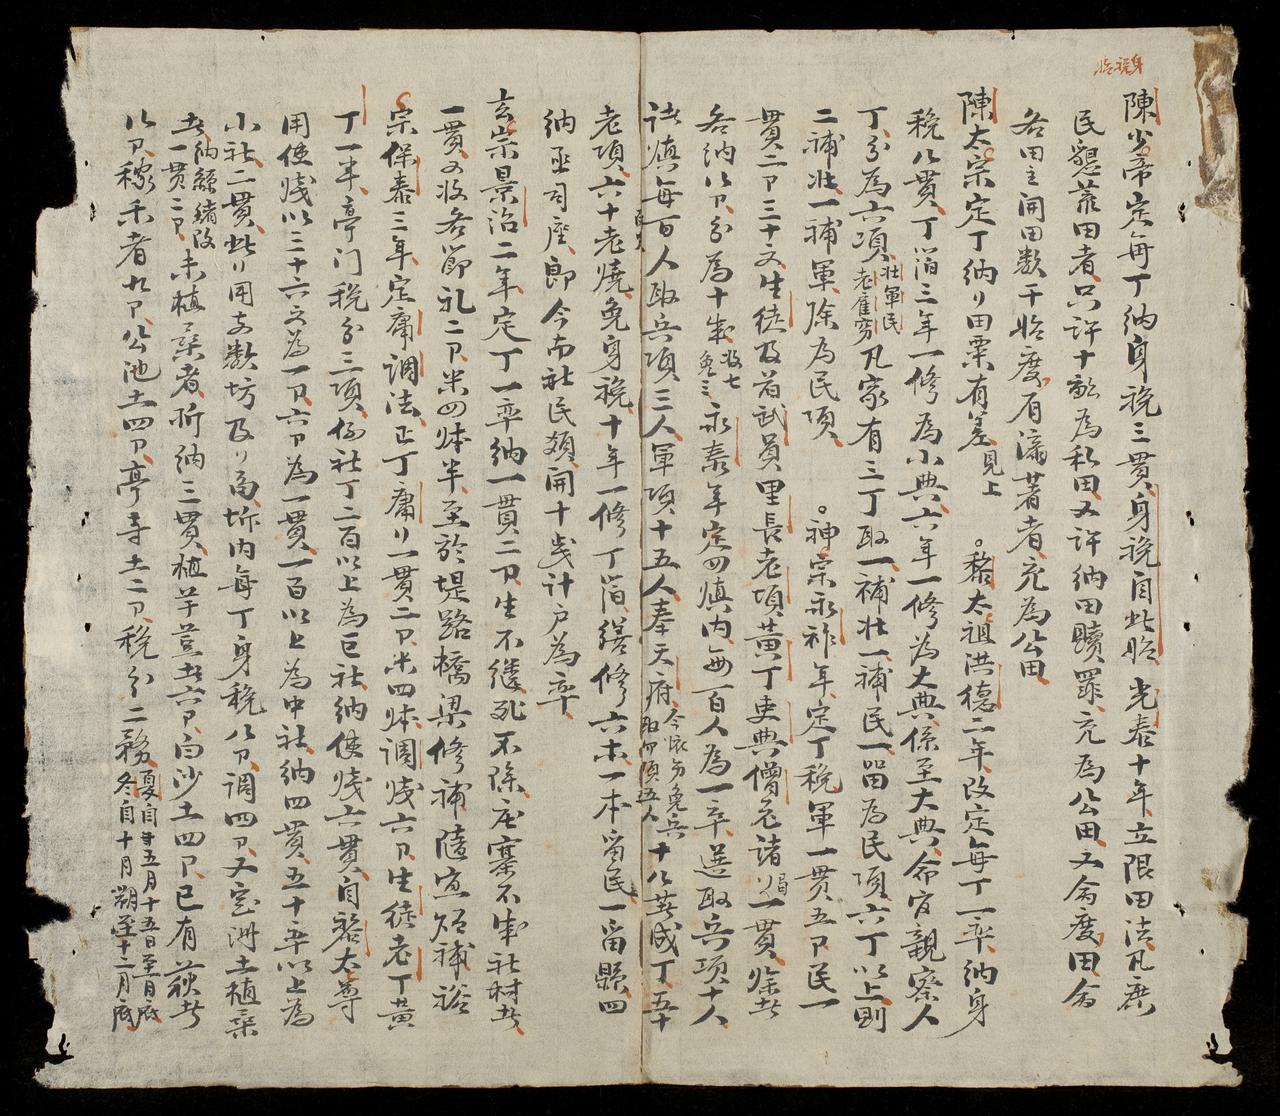 身稅始
陳少帝定每丁納身稅三貫身稅自此始 光泰十年立限田法凡庶
民懇菲田者只許十畝為私田又許納田贖罪充為公田又侖度田侖
各田主開田数干临度有濡著者充為公田
陳太宗定丁納田粟有差見上 黎太祖洪德二年改定每丁一率納身
稅八貫丁簿三年一修為小典六年一修為大典係至大典命官親察人
丁分為六項壯軍民老雇窮凡家有三丁取一補壯一補民一留為民項六丁以上則
二補壯一補軍除為民項 神宗永祚年定丁稅軍一貫五尸民一
貫二尸三十文生徒及首武員里長老項黃丁吏典僧各諸局一貫除此
各納八尸分為十歲收七免三永泰年定四鎮內每百人為一率選取兵項十人
諸鎮每百人取兵項三人軍項十五人奉天府今依旁免兵取四項五人十八英成丁五十
老項六十老燒免身稅十年一修丁簿繕修六本一本留民一留縣四
納承司座郎今南社民頗開十歲計户為率
玄宗景治二年定丁一率納一貫二尸生不继死不除庄寨不成社村者
一貫又收各節礼二尸米四砵半至於堤路橋梁修補隨宜短補裕
宗保泰三年定庸調法正丁庸一貫二尸米四砵調淺六尸生徒老丁黃
丁一半亭門稅分三項俗社丁二百以上為巨社納使淺六貫自
用使淺以三十六文為一尸六尸為一貫一百以上為中社納四貫五十率以上為
小社二貫此用支数坊及內每丁身稅八尸調四尸又定洲土植桑
者納緜緒改一貫二尸未植桑者折納三貫植芋荳者六尸白沙土四尸已有荻者
八尸稼禾者九尸公池土四尸亭寺土二尸稅分二務夏自五月十五日至月底冬自十月朔至十二月底